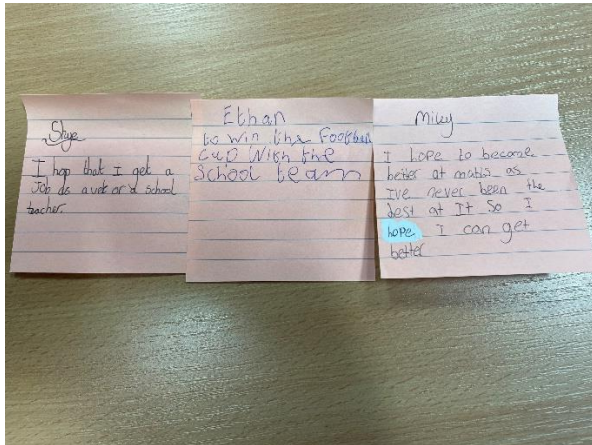 Skye
I hop that I get a
Job as a vet or a school
teacher.
Ethan
to win the Football
Cup With the
School team
Miky
I hope to become
better at maths as
I've never been the
best at It so I
hope I can get
better